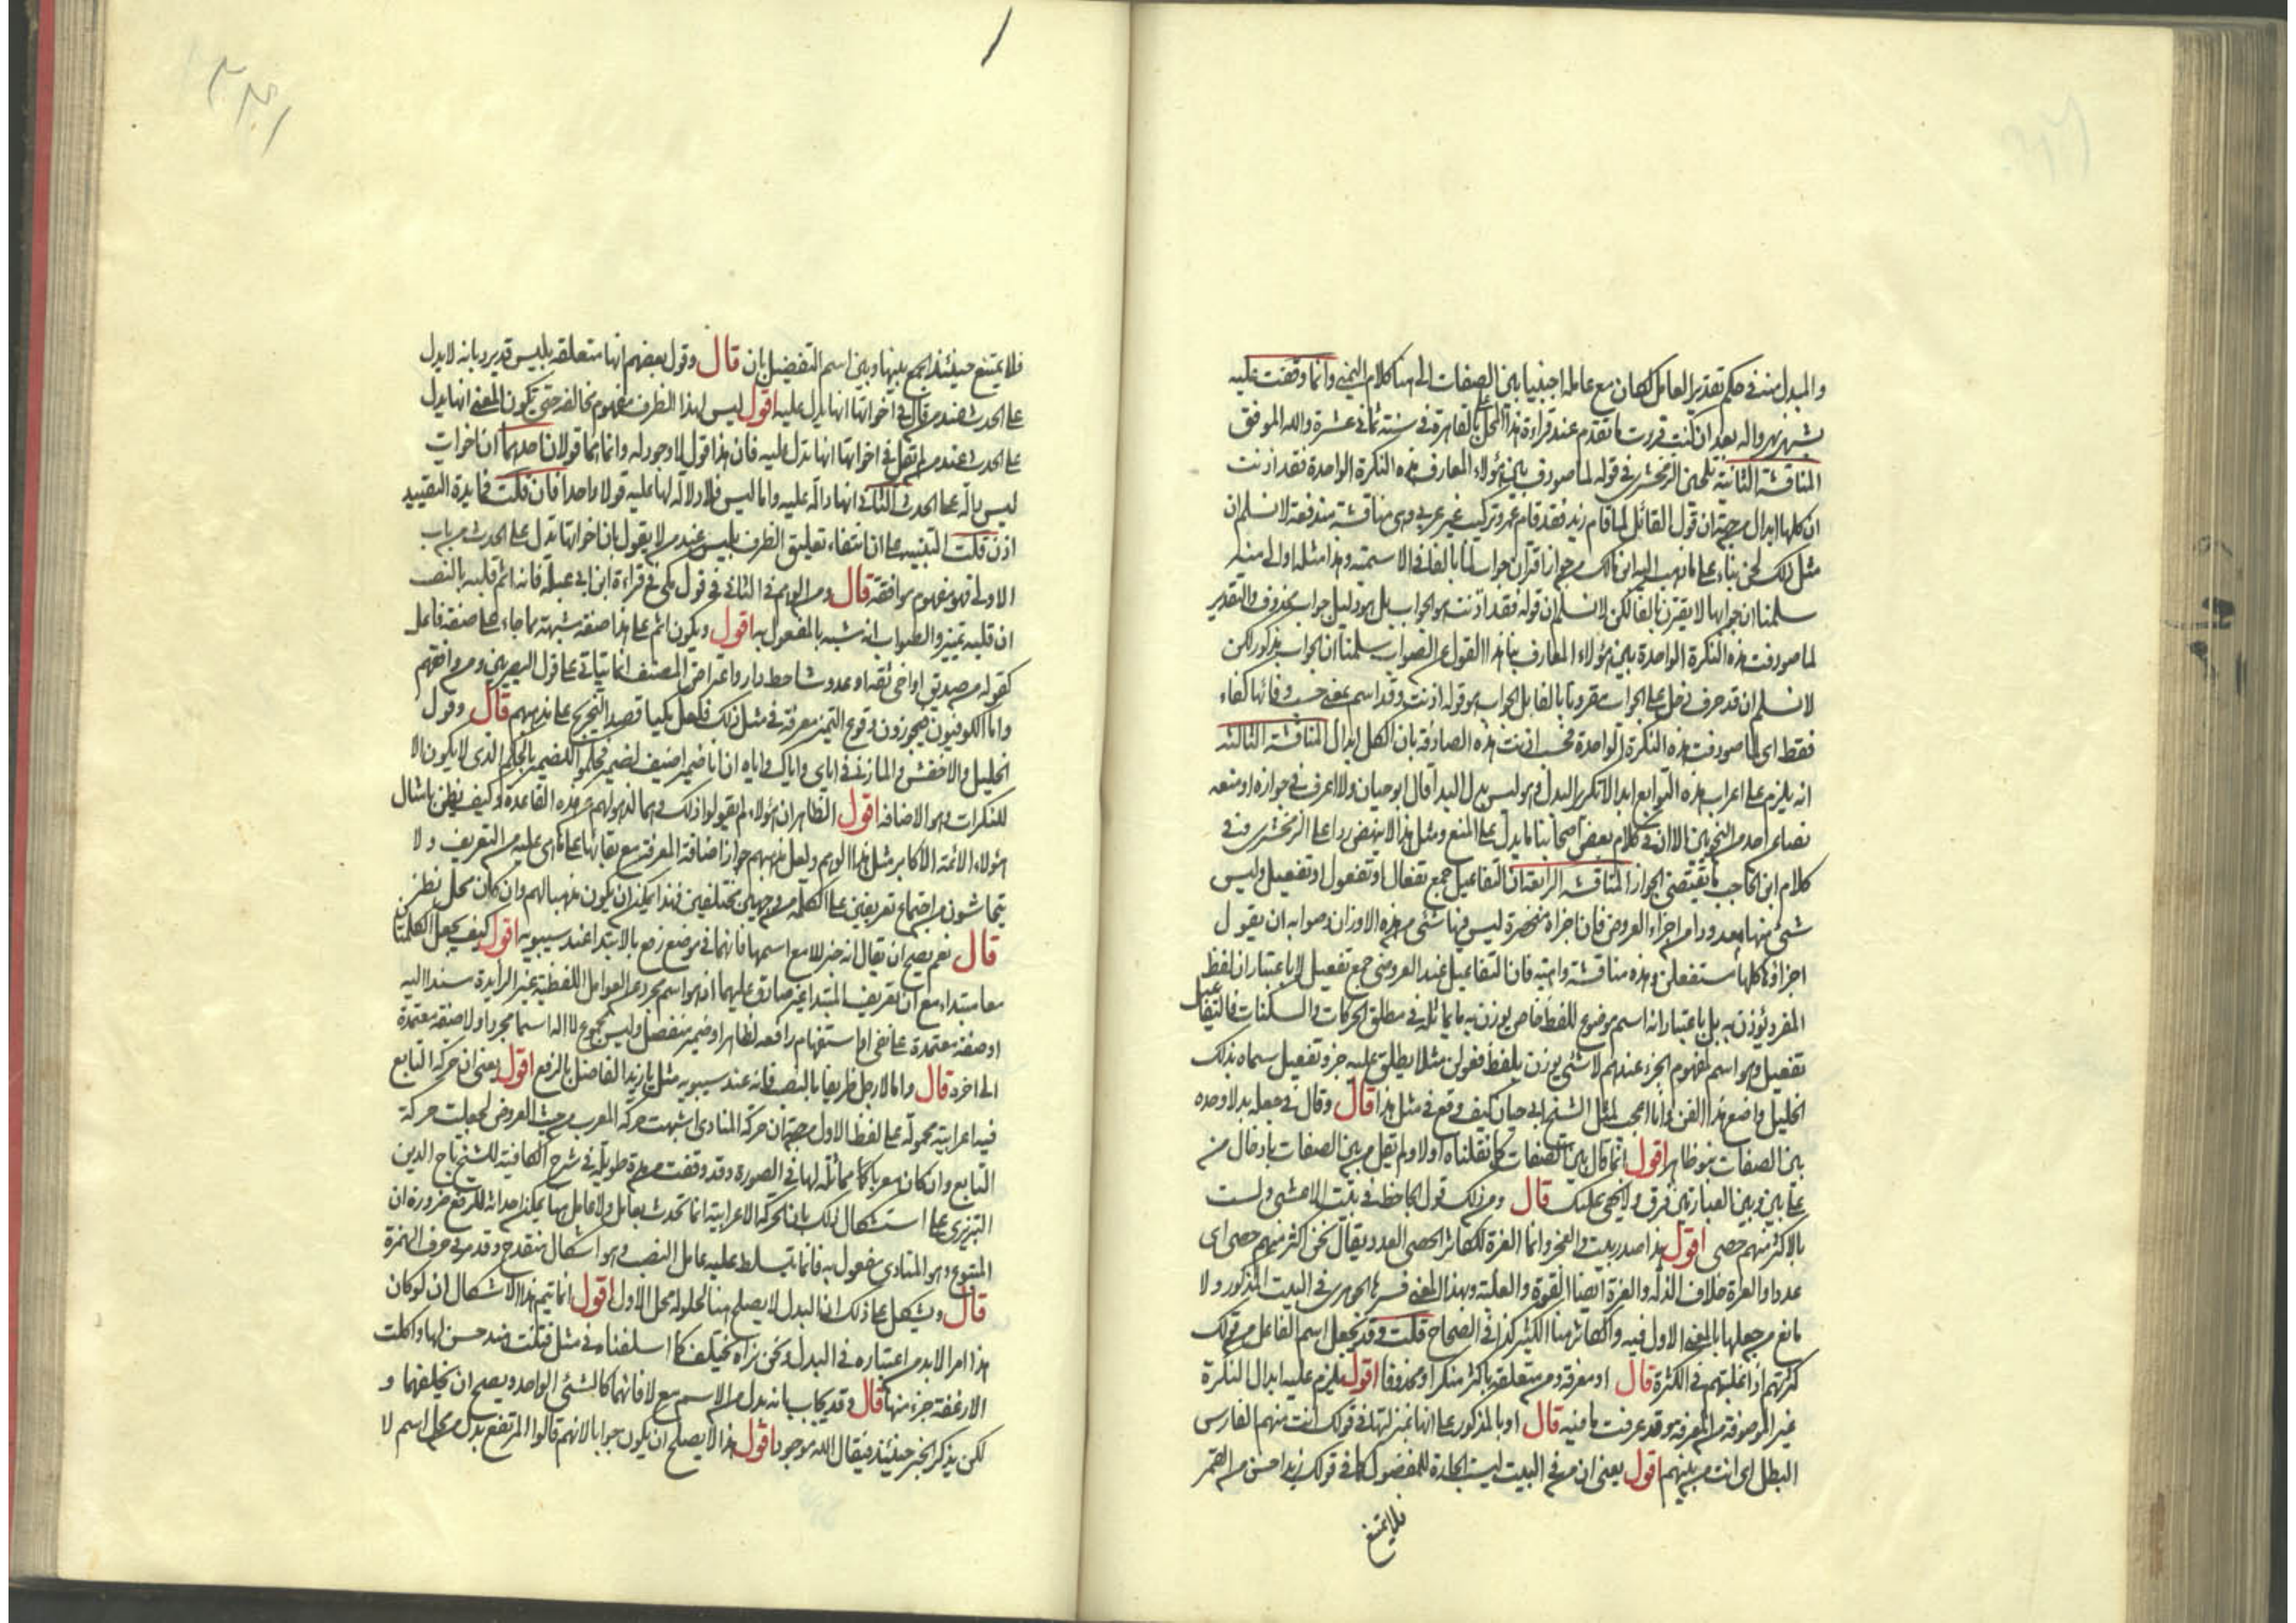 والمبدل منه في حكم تقدير العامل لكان مع عامله اجنبيا بين الصفات الى هنا كلام اليمني وانما وقفت عليه
بشهر نهرواله بعد ان كنت قررت ما تقدم عند قراءة هذا المحل بالقاهرة في سنة ثماني عشرة والله الموفق
المناقشة الثانية تلحين الزمخشري في قوله لما صودف بين هؤلاء المعارف هذه النكرة الواحدة فقد اذنت
ان كلها ابدال من جهة ان قول القائل لما قام زيد فقد قام عمرو تركيب غير عربي وهي مناقشة مندفعة لا نسلم ان
مثل ذلك لحن بناء على ما ذهب اليه ابن مالك من جواز اقتران جواب لما بالفا في الاسمية وهذا مثله اولى منه
سلمنا ان جوابها لا يقترن بالفا لكن لا نسلم ان قوله فقد اذنت هو الجواب بل هو دليل جواب محذوف والتقدير
لما صودفت هذه النكرة الواحدة بين هؤلاء المعارف هذا القول عن الصواب سلمنا ان الجواب مذكور لكن
لا نسلم ان قد حرف دخل على الجواب مقرونا بالفا بل الجواب هو قوله اذنت وقد اسم بمعنى حسب وفائها كفاء
فقط اى لما صودفت هذه النكرة الواحدة فحسب اذنت هذه الصادفة بان الكل ابدال المناقشة الثالثة
انه يلزم على اعراب هذه التوابع ابدالا تكرير البدل وهو ليس بدل البدا قال ابو حيان ولا اعرف في جوازه او منعه
نصا عن احد من النحويين الا ان في كلام بعض اصحابنا ما يدل على المنع ومثل هذا لا ينهض ردا على الزمخشري وفي
كلام ابن الحاجب ما يقتضى الجواز المناقشة الرابعة ان التفاعيل جمع تفعال او تفعول او تفعيل وليس
شئ منها معدودا من اجزاء العروض فان اجزاءه منحصرة ليس فيها شئ من هذه الاوزان وصوابه ان يقول
اجزاؤها كلها مستفعلن وهذه مناقشة واهية فان التفاعيل عند العروضي جمع تفعيل لا باعتبار ان لفظ
المفرد يوزن به بل باعتبار انه اسم موضوع للفظ خاص يوزن به ما يماثله في مطلق الحركات والسكنات فالتفاعيل
تفعيل وهو اسم لمفهوم الجزء عندهم لا شئ يوزن بلفظه ففعولن مثلا يطلق عليه جزء وتفعيل سماه بذلك
الخليل واضع هذا الفن وانا اعجب لمثل الشيخ ابي حيان كيف وقع في مثل هذا قال وقال في جعله بدلا وحده
بين الصفات نبو ظاهر اقول انما قال بين الصفات كما نقلناه اولا ولم يقل من بين الصفات بادخال من
على بين وبين العبارتين فرق ولا يخفى عليك قال ومن ذلك قول الجاحظ في بيت الاعشى ولست
بالاكثر منهم حصى اقول هذا صدر بيت في الفخر وانما العزة للكاثر الحصى العدد ويقال نحن اكثر منهم حصى اى
عددا والعزة خلاف الذلة والعزة ايضا القوة والغلبة وبهذا المعنى فسرها الجوهري في البيت المذكور ولا
مانع من جعلها بالمعنى الاول فيه والكاثر هنا الكثير كذا في الصحاح قلت وقد يجعل اسم الفاعل من قولك
كثرتهم اذا غلبتهم في الكثرة قال او معرفة ومن متعلقة باكثر منكرا او محذوفا اقول يلزم عليه ابدال النكرة
غير الموصوفة من المعرفة وقد عرفت ما فيه قال او بالمذكور على انها بمنزلتها في قولك انت منهم الفارس
البطل اى انت من بينهم اقول يعنى ان من في البيت ليست الجارة للمفضول كما في قولك زيد احسن من القمر
فلا يمتنع
فلا يمتنع حينئذ الجمع بينها وبين اسم التفضيل بان قال وقول بعضهم انها متعلقة بليس قد يرد بانه لا يدل
على الحدث عند من قال في اخواتها انها يدل عليه اقول ليس لهذا الظرف مفهوم مخالفة حتى يكون المعنى انها يدل
على الحدث عند من لم يقل في اخواتها انها تدل عليه فان هذا قول لا وجود له وانما هما قولان احدهما ان اخوات
ليس دالة على الحدث الثاني انها دالة عليه واما ليس فلا دلالة لها عليه قولا واحدا فان قلت فما فايدة التقييد
اذن قلت التنبيه على ان انتفاء تعليق الظرف بليس عند من لا يقول بان اخواتها تدل على الحدث من باب
الاولى فهو مفهوم موافقة قال ومن الوهم في الثاني قول مكي في قراءة ابن ابي عبلة فانه اثم قلبه بالنصب
ان قلبه تمييز والصواب انه شبه بالمفعول به اقول ويكون اثم على هذا صفة مشبهة مما جاء على صفة فاعل
كقوله من صديق او اخى ثقة او عدو شاحط دارا واعراض المصنف انما يتاتى على قول البصريين ومن وافقهم
واما الكوفيون فيجوزون وقوع التمييز معرفة في مثل ذلك فلعل مكيا قصد التخريج على مذهبهم قال وقول
الخليل والاخفش والمازني في اياي واياك واياه ان ايا ضمير اضيف لضمير فحكموا للضمير بالحكم الذى لا يكون الا
للنكرات وهو الاضافة اقول الظاهر ان هؤلاء لم يقولوا ذلك وهما لذهولهم عن هذه القاعدة وكيف يظن بامثال
هؤلاء الائمة الاكابر مثل هذا الوهم ولعل مذهبهم جواز اضافة المعرفة مع بقائها على ما هى عليه من التعريف ولا
يتحاشون من اجتماع تعريفين على الكلمة من وجهين مختلفين فهذا يمكن ان يكون مذهبا لهم وان كان محل نظر
قال نعم يصح ان يقال انه خبر للا مع اسمها فانهما في موضع رفع بالابتدا عند سيبويه اقول كيف يجعل الكلمتان
معا مبتداء مع ان تعريف المبتدا غير صادق عليهما اذ هو اسم مجرد عن العوامل اللفظية غير الزايدة مسندا اليه
او صفة معتمدة على نفى او استفهام رافعة لظاهر او ضمير منفصل وليس مجموع لا اله اسما مجردا ولا صفة معتمدة
الى اخره قال واما لا رجل ظريفا بالنصب فانه عند سيبويه مثل يا زيد الفاضل بالرفع اقول يعنى ان حركة التابع
فيه اعرابية محمولة على لفظ الاول من جهة ان حركة المنادى اشبهت حركة المعرب من حيث العروض لجعلت حركة
التابع وان كان معربا كما مماثلة لها في الصورة وقد وقفت من مدة طويلة في شرح الكافية للشيخ تاج الدين
التبريزى على استشكال ذلك بان الحركة الاعرابية انما تحدث بعامل ولا عامل هنا يمكن احداثه للرفع ضرورة ان
المتبوع وهو المنادى مفعول به فانما يتسلط عليه عامل النصب وهو اشكال منقدح وقد مر في حرف الهمزة
قال ويشكل على ذلك ان البدل لا يصلح هنا لحلوله محل الاول اقول انما يتم هذا الاشكال ان لو كان
هذا امرا لا بد من اعتباره في البدل ونحن نراه يختلف كما اسلفناه في مثل فتنت هند حسن لها واكلت
الارغفة جزء منها قال وقد يجاب بانه بدل من الاسم مع لا فانهما كالشئ الواحد ويصح ان يخلفهما و
لكن يذكر الخبر حينئذ فيقال الله موجود اقول هذا لا يصلح ان يكون جوابا لانهم قالوا المرتفع بدل من محل اسم لا